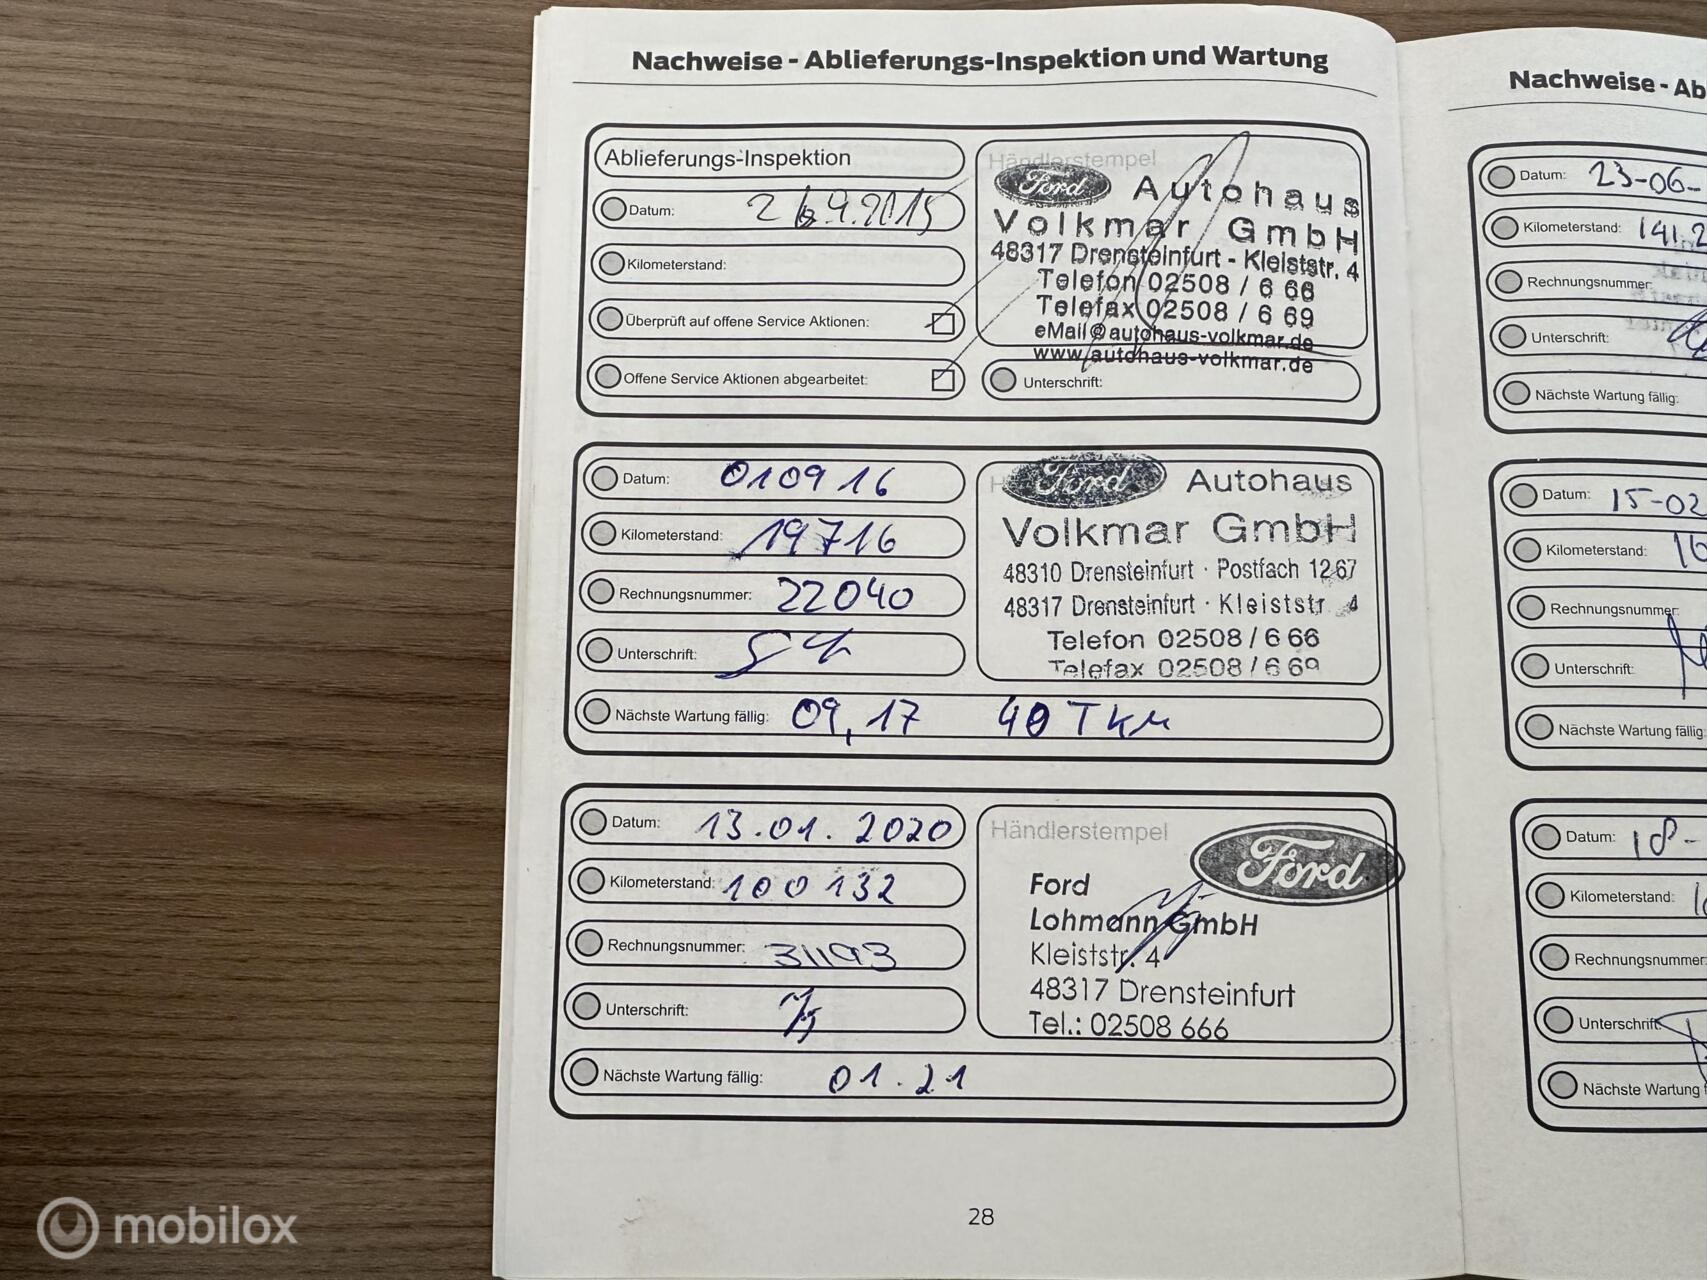 Nachweise - Ablieferungs-Inspektion und Wartung
Ablieferungs-Inspektion
Datum:
Kilometerstand:
Überprüft auf offene Service Aktionen:
Offene Service Aktionen abgearbeitet:
Händlerstempel
Ford Autohaus
Volkmar GmbH
48317 Drensteinfurt - Kleiststr. 4
Telefon 02508 / 6 66
Telefax 02508 / 6 69
eMail@autohaus-volkmar.de
www.autohaus-volkmar.de
Unterschrift:
Datum: 010916
Kilometerstand: 19716
Rechnungsnummer: 22040
Unterschrift:
Ford Autohaus
Volkmar GmbH
48310 Drensteinfurt · Postfach 12 67
48317 Drensteinfurt · Kleiststr. 4
Telefon 02508 / 6 66
Telefax 02508 / 6 69
Nächste Wartung fällig: 09,17 40 TKM
Datum: 13.01.2020
Kilometerstand: 100132
Rechnungsnummer: 31193
Unterschrift:
Händlerstempel
Ford
Ford
Lohmann GmbH
Kleiststr. 4
48317 Drensteinfurt
Tel.: 02508 666
Nächste Wartung fällig: 01.21
28
Nachweise - Ab
Datum: 23-06-
Kilometerstand: 141.2
Rechnungsnummer:
Unterschrift:
Nächste Wartung fällig:
Datum: 15-02
Kilometerstand:
Rechnungsnummer:
Unterschrift:
Nächste Wartung fällig:
Datum: 18-
Kilometerstand:
Rechnungsnummer:
Unterschrift:
Nächste Wartung
mobilox